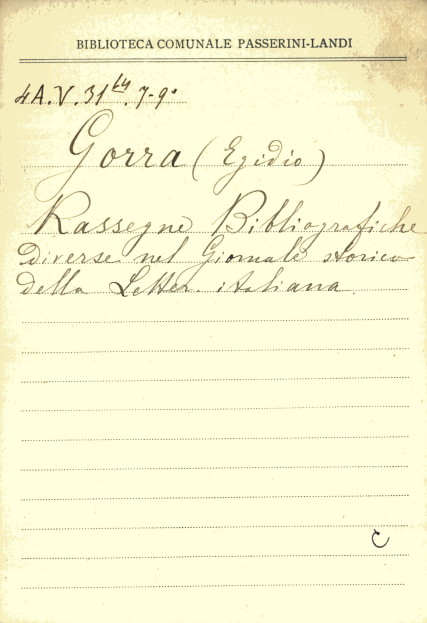 BIBLIOTECA COMUNALE PASSERINI-LANDI
4A.V.31 7-9º
Gorra (Egidio)
Rassegne Bibliografiche
Diverse nel Giornale storico
della Letter. italiana
C